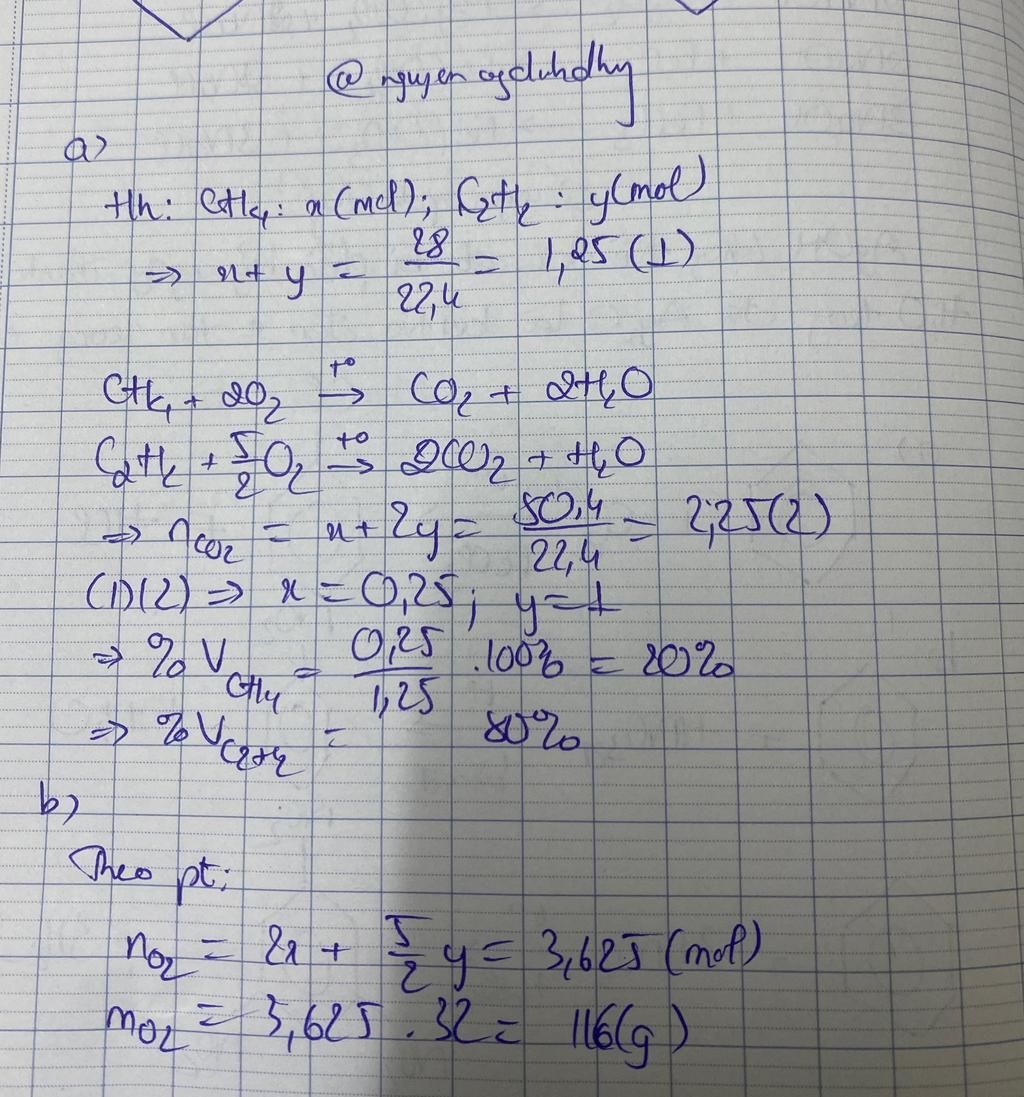 @nguyenngduhdhy
a)
Hh: CH₄: x (mol); C₂H₂: y (mol)
⇒ x + y = 28/22,4 = 1,25 (1)
CH₄ + 2O₂ →(t°) CO₂ + 2H₂O
C₂H₂ + 5/2 O₂ →(t°) 2CO₂ + H₂O
⇒ nCO₂ = x + 2y = 50,4/22,4 = 2,25 (2)
(1)(2) ⇒ x = 0,25; y = 1
⇒ %V CH₄ = 0,25/1,25 .100% = 20%
⇒ %V C₂H₂ = 80%
b)
Theo pt:
nO₂ = 2x + 5/2 y = 3,625 (mol)
mO₂ = 3,625 . 32 = 116 (g)